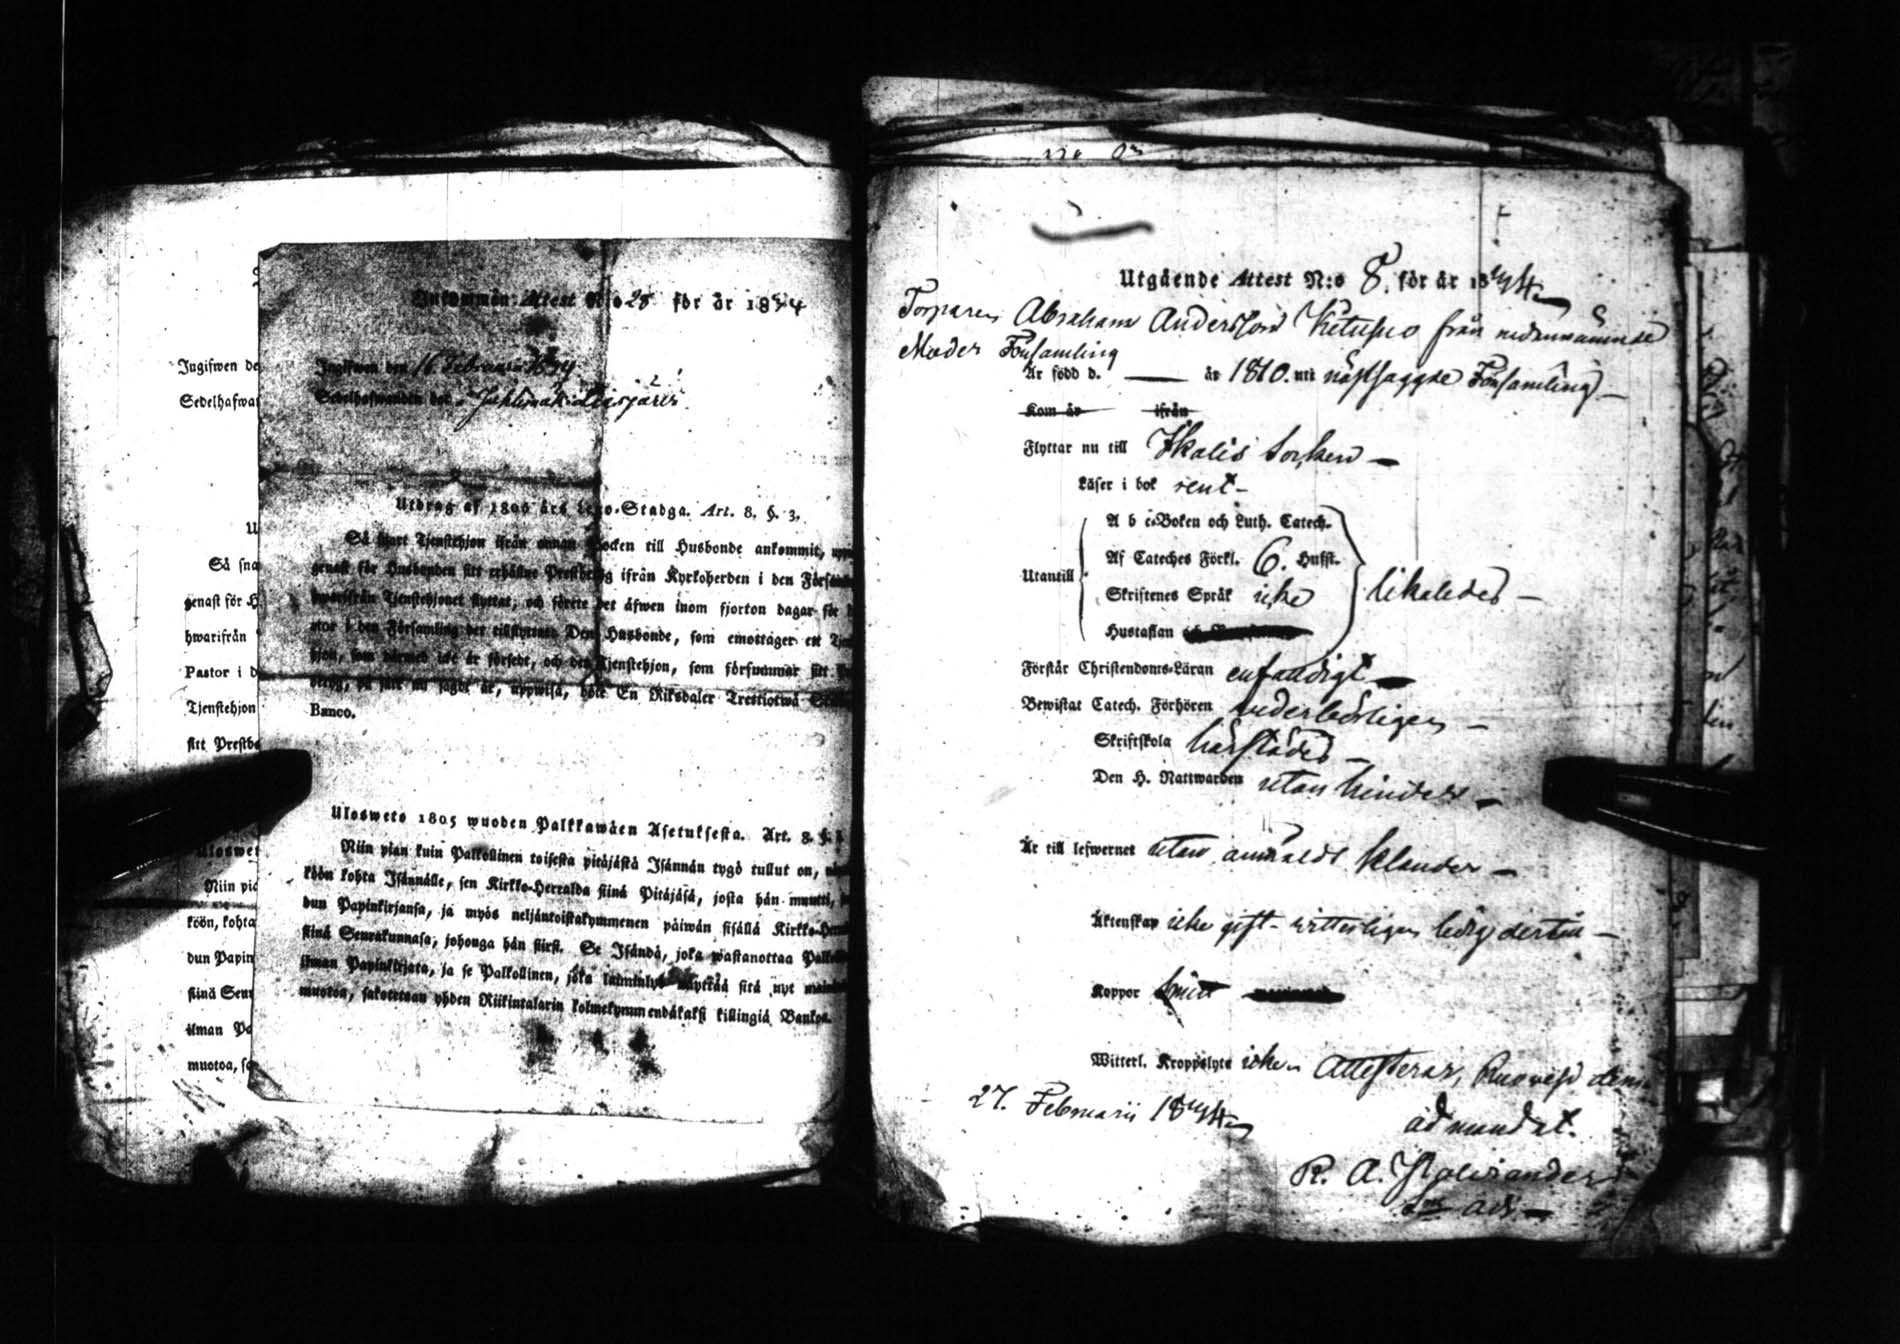 Inkommen Attest N:o 28 för år 1834
Ingifwen den 16 Februarii 1834
Sedelhafwanden
Utdrag af 1805 års Lego-Stadga. Art. 8. §. 3.
Så snart Tjenstehjon ifrån annan Socken till Husbonde ankommit,
genast för Husbonden sitt erhållne Prestbetyg ifrån Kyrkoherden i den
hwarifrån Tjenstehjonet flyttat, och förete det äfwen inom fjorton dagar för
stor i den Församling det tillflyttat. Den Husbonde, som emottager ett
hjon, som dermed icke är försedt, och det Tjenstehjon, som försummar sitt
betyg, på sätt nu sagdt är, uppwisa, böte En Riksdaler Trettiotwå
Banco.
Ulosweto 1805 wuoden Palkkawäen Asetuksesta. Art. 8. §. 3
Niin pian kuin Palkollinen toisesta pitäjästä Isännän tygö tullut on,
köön kohta Isännälle, sen Kirkko-Herralda siinä Pitäjäsä, josta hän muutti,
dun Papinkirjansa, ja myös neljäntoistakymmenen päiwän sisällä
siinä Seurakunnasa, johonga hän siirsi. Se Isändä, joka wastanottaa
ilman Papinkirjata, ja se Palkollinen, joka laiminlyö näyttää sitä nyt
muotoa, sakotetaan yhden Riikintalarin kolmekymmendäkaksi killingiä Bankos.
Ingifwen de
Sedelhafwa
U
Så sna
genast för H
hwarifrån
Pastor i d
Tjenstehjon
sitt Prestbe
Uloswet
Niin pia
köön, kohta
dun Papin
siinä Seur
ilman Pa
muotoa, sa
Utgående Attest N:o 8. för år 1844
Torparen Abraham Andersson Ketuspo från nedannämnde
Moder Församling
Är född d. — år 1810. uti nästsaggde Församling —
Kom år ifrån
Flyttar nu till Ikalis Socken —
Läser i bok rent —
A b c-Boken och Luth. Catech.
Af Cateches Förkl. 6. Hufst.
Utantill Skriftenes Språk icke likaledes —
Hustaflan
Förstår Christendoms-Läran enfaldigt —
Bewistat Catech. Förhören wederbörligen —
Skriftskola härstädes —
Den H. Nattwarden utan hinder —
Är till lefwernet utan anmäldt klander —
Äktenskap icke gift - witterligen ledig dertill —
Koppor haft
Witterl. Kroppslyte icke. Attesterar, Ruovesi dem
27. Februarii 1844
ad mandat.
R. A.